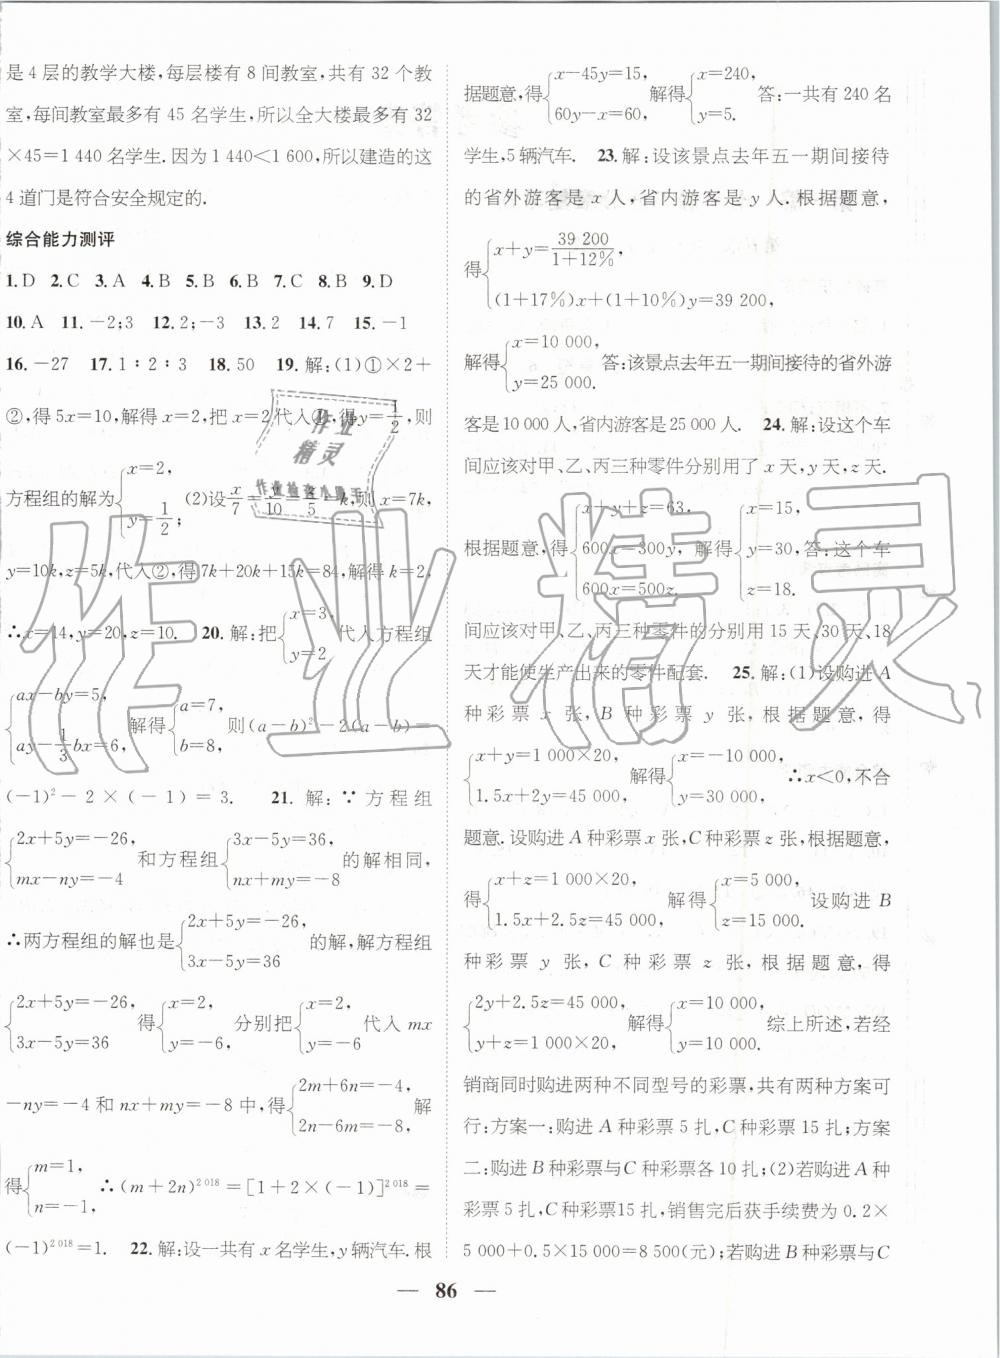 是4层的教学大楼,每层楼有8间教室,共有32个教
室,每间教室最多有45名学生,所以全大楼最多有32
×45=1 440名学生.因为1 440<1 600,所以建造的这
4道门是符合安全规定的.
综合能力测评
1.D 2.C 3.A 4.B 5.B 6.B 7.C 8.B 9.D
10.A 11.-2;3 12.2;-3 13.2 14.7 15.-1
16.-27 17.1∶2∶3 18.50 19.解:(1)①×2+
②,得5x=10,解得x=2,把x=2代入①,得y=1/2,则
方程组的解为{x=2, y=1/2; (2)设x/7=y/10=z/5=k,则x=7k,
y=10k,z=5k,代入②,得7k+20k+15k=84,解得k=2,
∴x=14,y=20,z=10. 20.解:把{x=3, y=2代入方程组
{ax-by=5, ay-1/3bx=6,解得{a=7, b=8,则(a-b)²-2(a-b)=
(-1)²-2×(-1)=3. 21.解:∵方程组
{2x+5y=-26, mx-ny=-4和方程组{3x-5y=36, nx+my=-8的解相同,
∴两方程组的解也是{2x+5y=-26, 3x-5y=36的解,解方程组
{2x+5y=-26, 3x-5y=36得{x=2, y=-6,分别把{x=2, y=-6代入mx
-ny=-4和nx+my=-8中,得{2m+6n=-4, 2n-6m=-8,解
得{m=1, n=-1,∴(m+2n)²⁰¹⁸=[1+2×(-1)]²⁰¹⁸=
(-1)²⁰¹⁸=1. 22.解:设一共有x名学生,y辆汽车.根
据题意,得{x-45y=15, 60y-x=60,解得{x=240, y=5.答:一共有240名
学生,5辆汽车. 23.解:设该景点去年五一期间接待
的省外游客是x人,省内游客是y人.根据题意,
得{x+y=39 200/(1+12%), (1+17%)x+(1+10%)y=39 200,
解得{x=10 000, y=25 000.答:该景点去年五一期间接待的省外游
客是10 000人,省内游客是25 000人. 24.解:设这个车
间应该对甲、乙、丙三种零件分别用了x天,y天,z天.
根据题意,得{x+y+z=63, 600x=300y, 600x=500z.解得{x=15, y=30, z=18.答:这个车
间应该对甲、乙、丙三种零件的分别用15天、30天、18
天才能使生产出来的零件配套. 25.解:(1)设购进A
种彩票x张,B种彩票y张,根据题意,得
{x+y=1 000×20, 1.5x+2y=45 000,解得{x=-10 000, y=30 000,∴x<0,不合
题意.设购进A种彩票x张,C种彩票z张,根据题意,
得{x+z=1 000×20, 1.5x+2.5z=45 000,解得{x=5 000, z=15 000.设购进B
种彩票y张,C种彩票z张,根据题意,得
{2y+2.5z=45 000, y+z=1 000×20,解得{x=10 000, y=10 000.综上所述,若经
销商同时购进两种不同型号的彩票,共有两种方案可
行:方案一:购进A种彩票5扎,C种彩票15扎;方案
二:购进B种彩票与C种彩票各10扎;(2)若购进A种
彩票5扎,C种彩票15扎,销售完后获手续费为0.2×
5 000+0.5×15 000=8 500(元);若购进B种彩票与C
— 86 —
作业精灵
作业
精灵
作业检查小助手